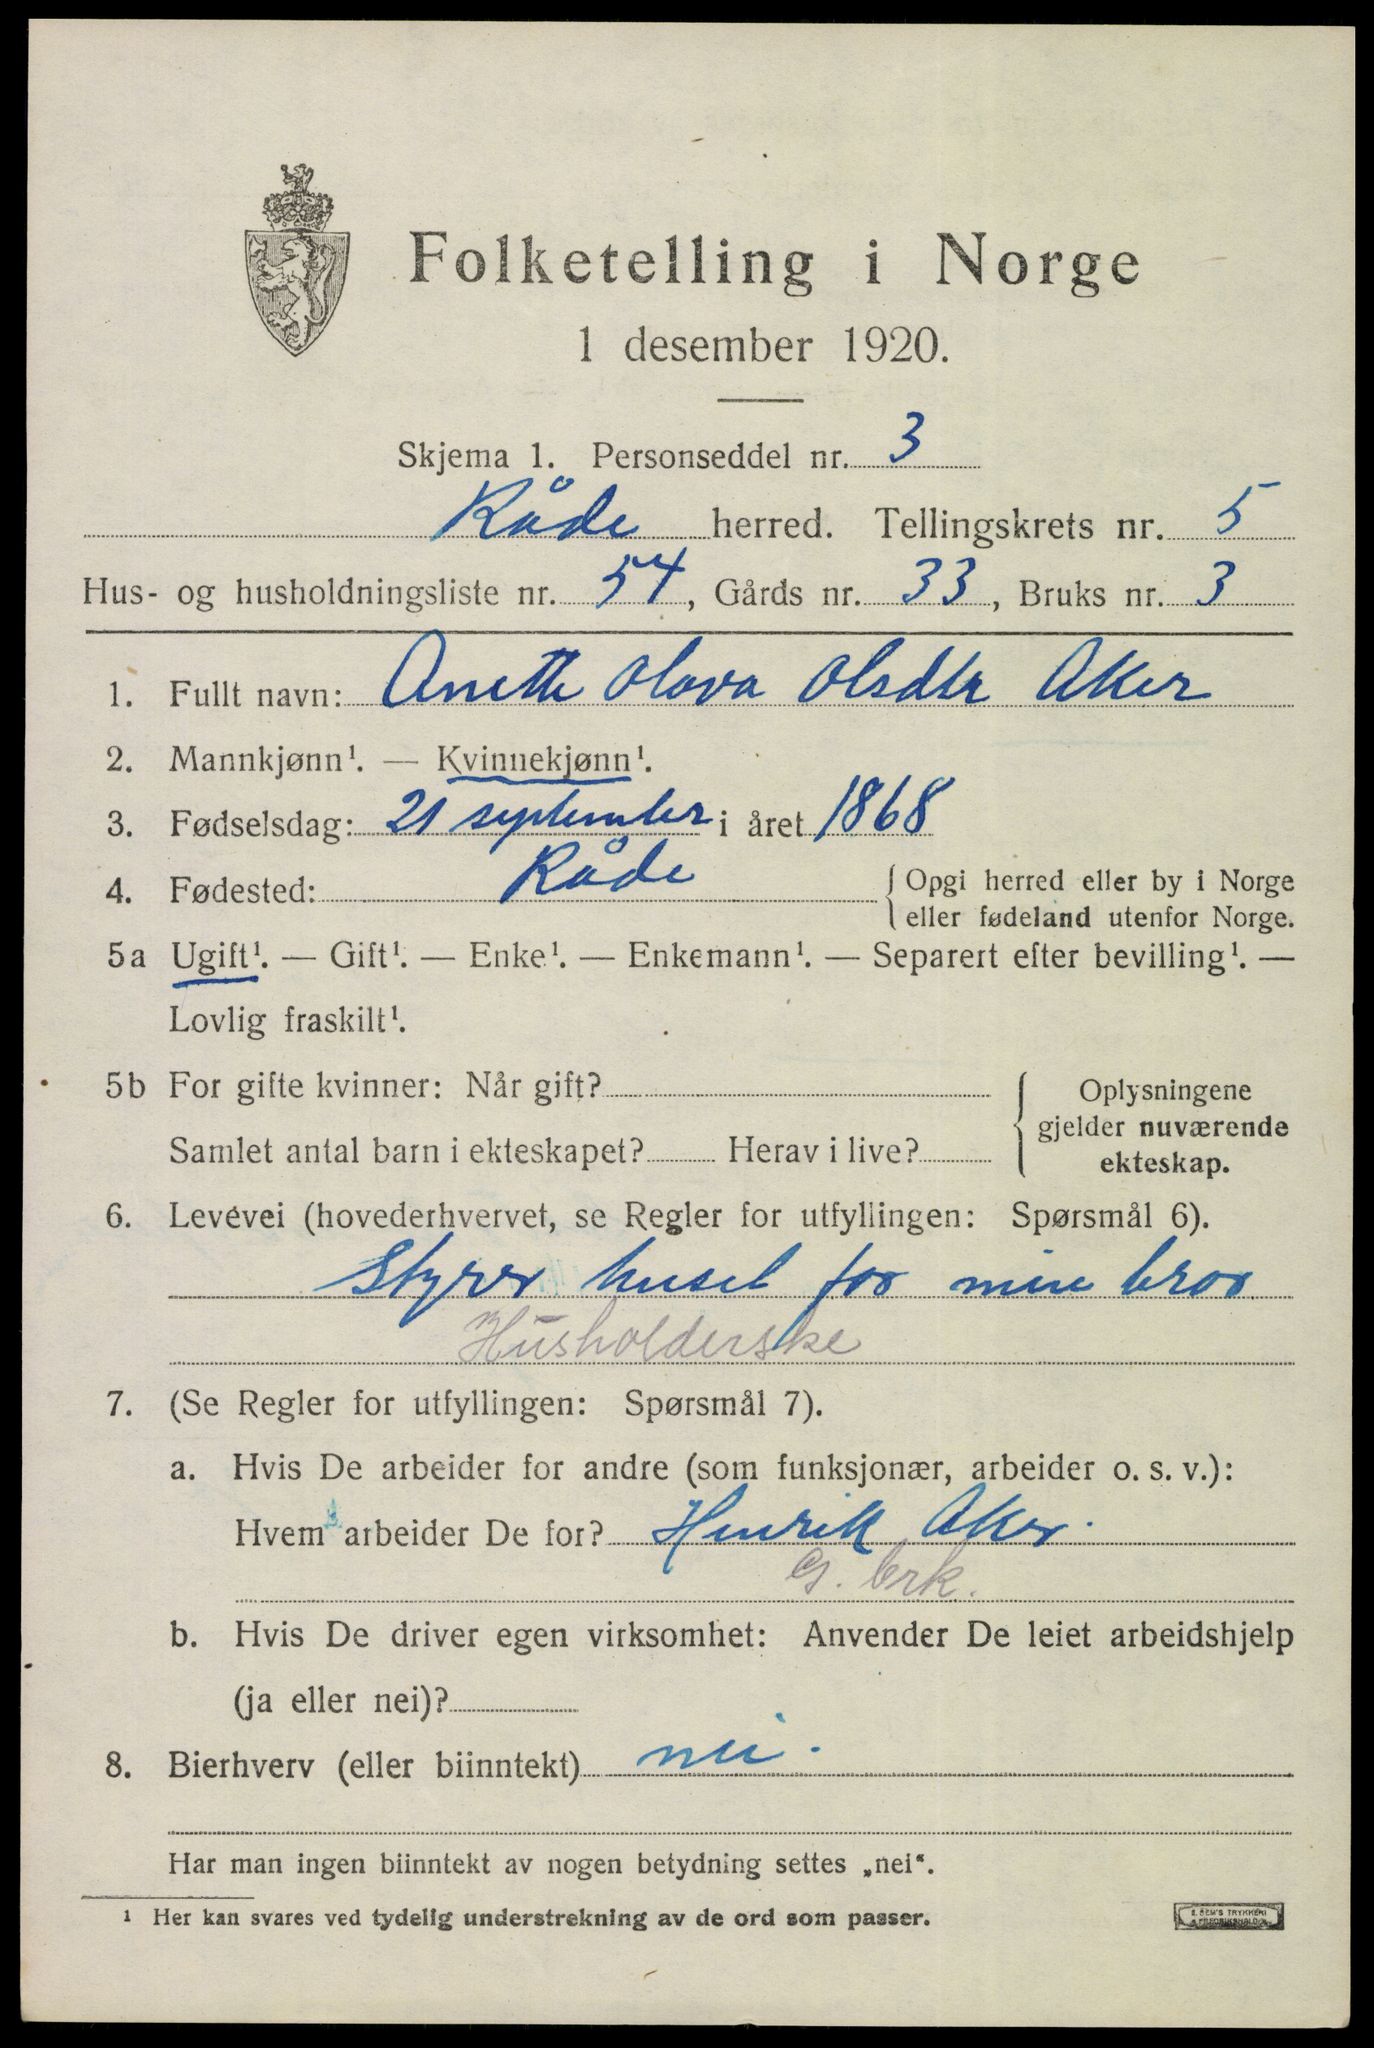 Folketelling i Norge
1 desember 1920.
Skjema 1. Personseddel nr. 3
Råde herred. Tellingskrets nr. 5
Hus- og husholdningsliste nr. 54, Gårds nr. 33, Bruks nr. 3
1. Fullt navn: Anette Olava Olsdtr Aker
2. Mannkjønn¹. — Kvinnekjønn¹.
3. Fødselsdag: 21 september i året 1868
4. Fødested: Råde { Opgi herred eller by i Norge
eller fødeland utenfor Norge.
5a Ugift¹. — Gift¹. — Enke¹. — Enkemann¹. — Separert efter bevilling¹. —
Lovlig fraskilt¹.
5b For gifte kvinner: Når gift?
Samlet antal barn i ekteskapet? Herav i live?
{ Oplysningene
gjelder nuværende
ekteskap.
6. Levevei (hovederhvervet, se Regler for utfyllingen: Spørsmål 6).
Styrer huset for min bror
Husholderske
7. (Se Regler for utfyllingen: Spørsmål 7).
a. Hvis De arbeider for andre (som funksjonær, arbeider o. s. v.):
Hvem arbeider De for? Henrik Aker.
G. brk.
b. Hvis De driver egen virksomhet: Anvender De leiet arbeidshjelp
(ja eller nei)?
8. Bierhverv (eller biinntekt) nei.
Har man ingen biinntekt av nogen betydning settes „nei“.
¹ Her kan svares ved tydelig understrekning av de ord som passer.
E. SEM'S TRYKKERI
FREDRIKSHALD